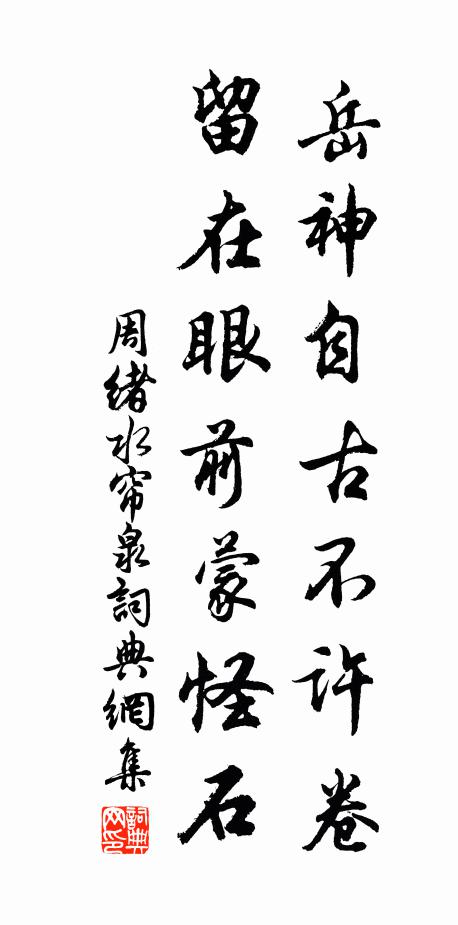 岳神自古不許卷
留在眼前蒙怪石
周緒水帘泉詞典網集
詞典网印